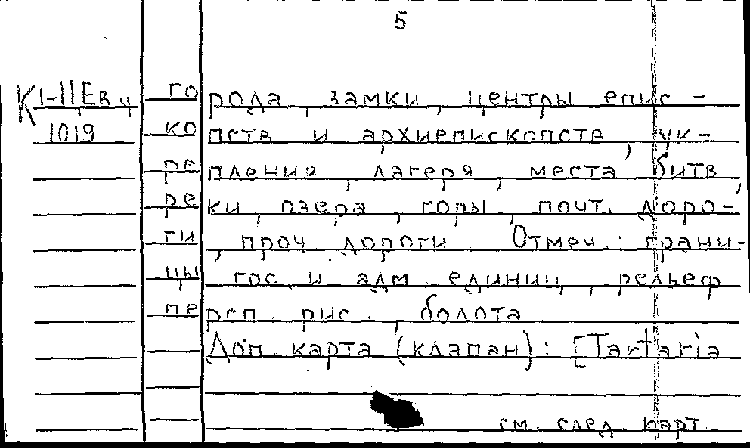 5
К1-IIЕв.ц города, замки, центры епис-
1019 копств и архиепископств, ук-
репления, лагеря, места битв,
реки, озера, горы, почт. доро-
ги, проч. дороги. Отмеч.: грани-
цы гос. и адм. единиц, рельеф
персп. рис., болота
Доп. карта (клапан): [Tartaria
см. след. карт.